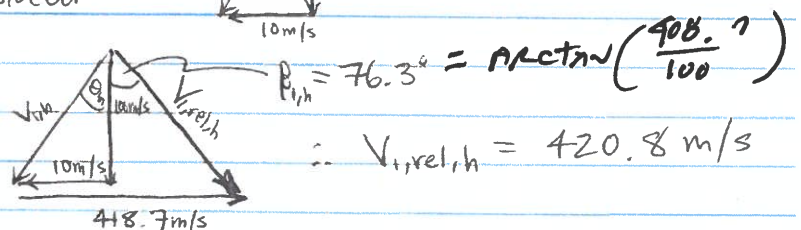 10m/s
β₁,h = 76.3° = ARCTAN(408.7/100)
θh
V₁,h
V₁,rel,h
10m/s
∴ V₁,rel,h = 420.8 m/s
418.7m/s